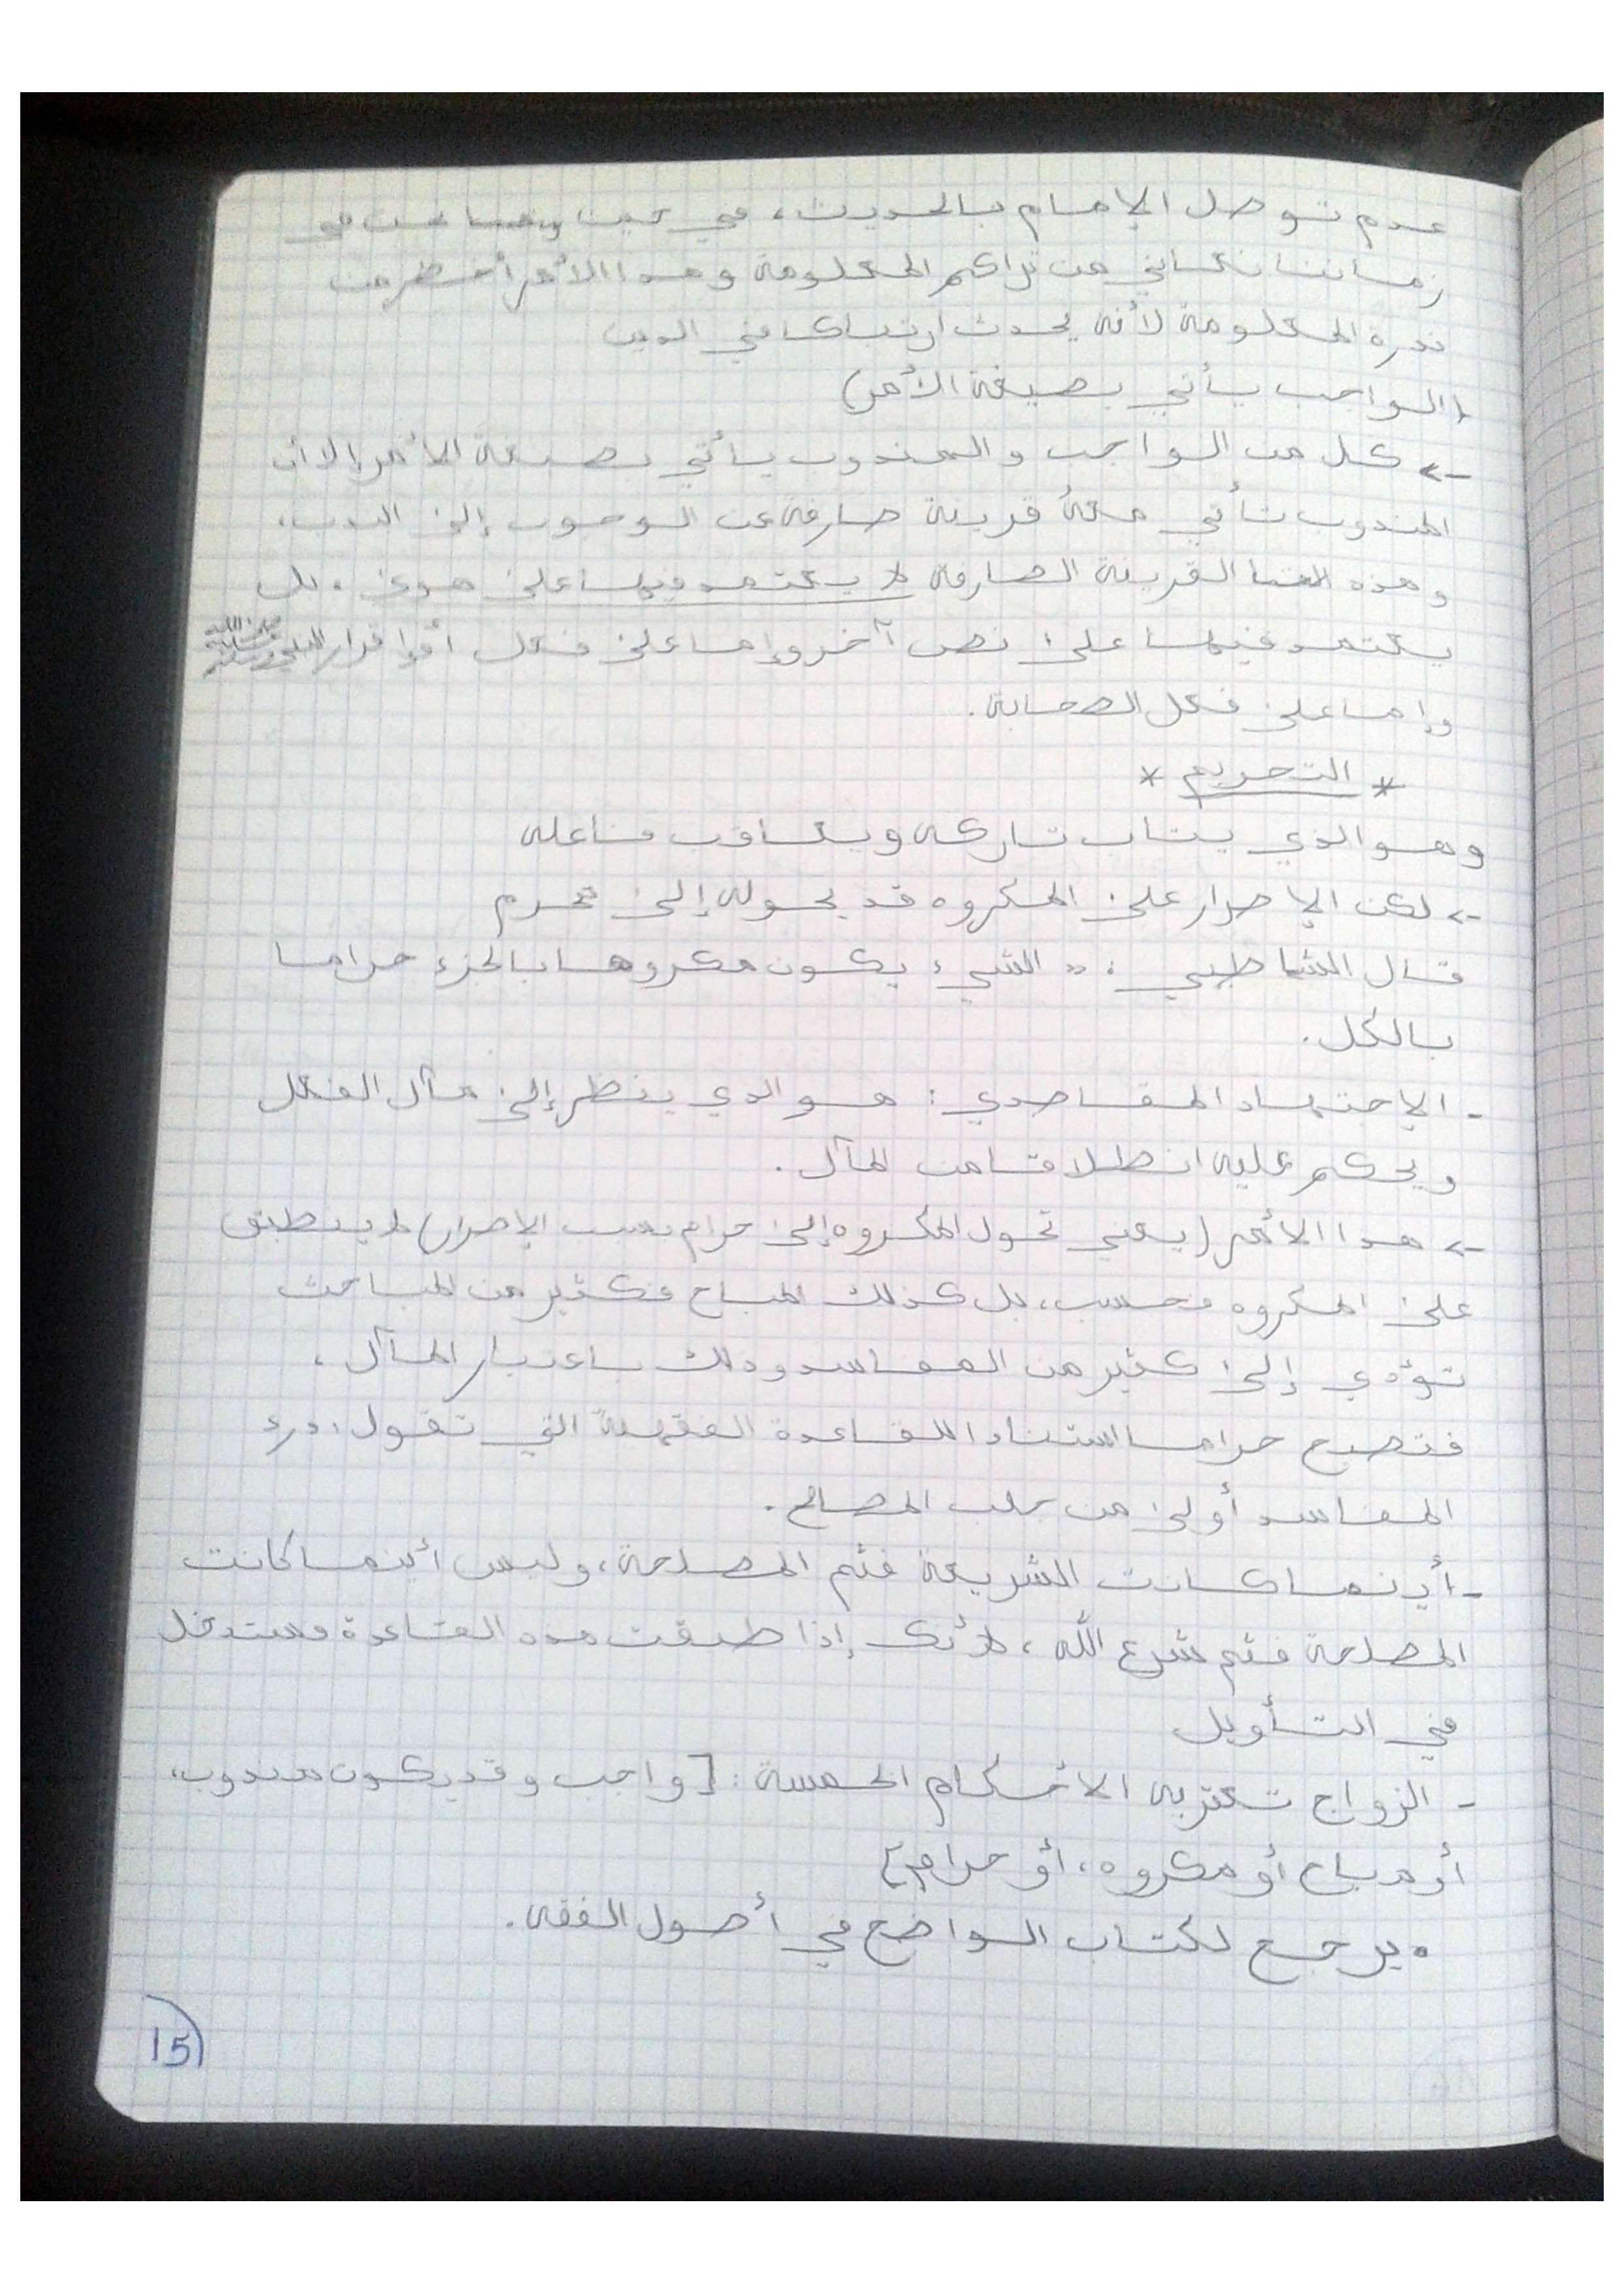 عدم توصل الإمام بالحديث، في حين نحن في
زماننا نعاني من تراكم المعلومة وهذا الأمر أخطر من
ندرة المعلومة لأنه يحدث ارتباكا في الدين
(الواجب يأتي بصيغة الأمر)
-> كل من الواجب والمندوب يأتي بصيغة الأمر إلا أن
المندوب تأتي معه قرينة صارفة عن الوجوب إلى الندب،
وهذه القرينة الصارفة لا يعتمد فيها على هوى، بل
يعتمد فيها على نص آخر وإما على فعل أو إقرار النبي صلى الله عليه وسلم
وإما على فعل الصحابة.
* التحريم *
وهو الذي يتاب تاركه ويعاقب فاعله
-> لكن الإصرار على المكروه قد يحوله إلى محرم
قال الشاطبي: "الشيء يكون مكروها بالجزء حراما
بالكل.
- الاجتهاد المقاصدي: هو الذي ينظر إلى مآل الفعل
ويحكم عليه انطلاقا من المآل.
-> هذا الأمر (يعني تحول المكروه إلى حرام بسبب الإصرار) لا ينطبق
على المكروه فحسب، بل كذلك المباح فكثير من المباحث
تؤدي إلى كثير من المفاسد وذلك باعتبار المآل،
فتصبح حراما استنادا للقاعدة الفقهية التي تقول: درء
المفاسد أولى من جلب المصالح.
- أينما كانت الشريعة فثم المصلحة، وليس أينما كانت
المصلحة فثم شرع الله، لأنك إذا طبقت هذه القاعدة فستدخل
في التأويل
- الزواج تعتريه الأحكام الخمسة: [واجب وقد يكون مندوب،
أو مباح أو مكروه، أو حرام]
• يرجع لكتاب الواضح في أصول الفقه.
15